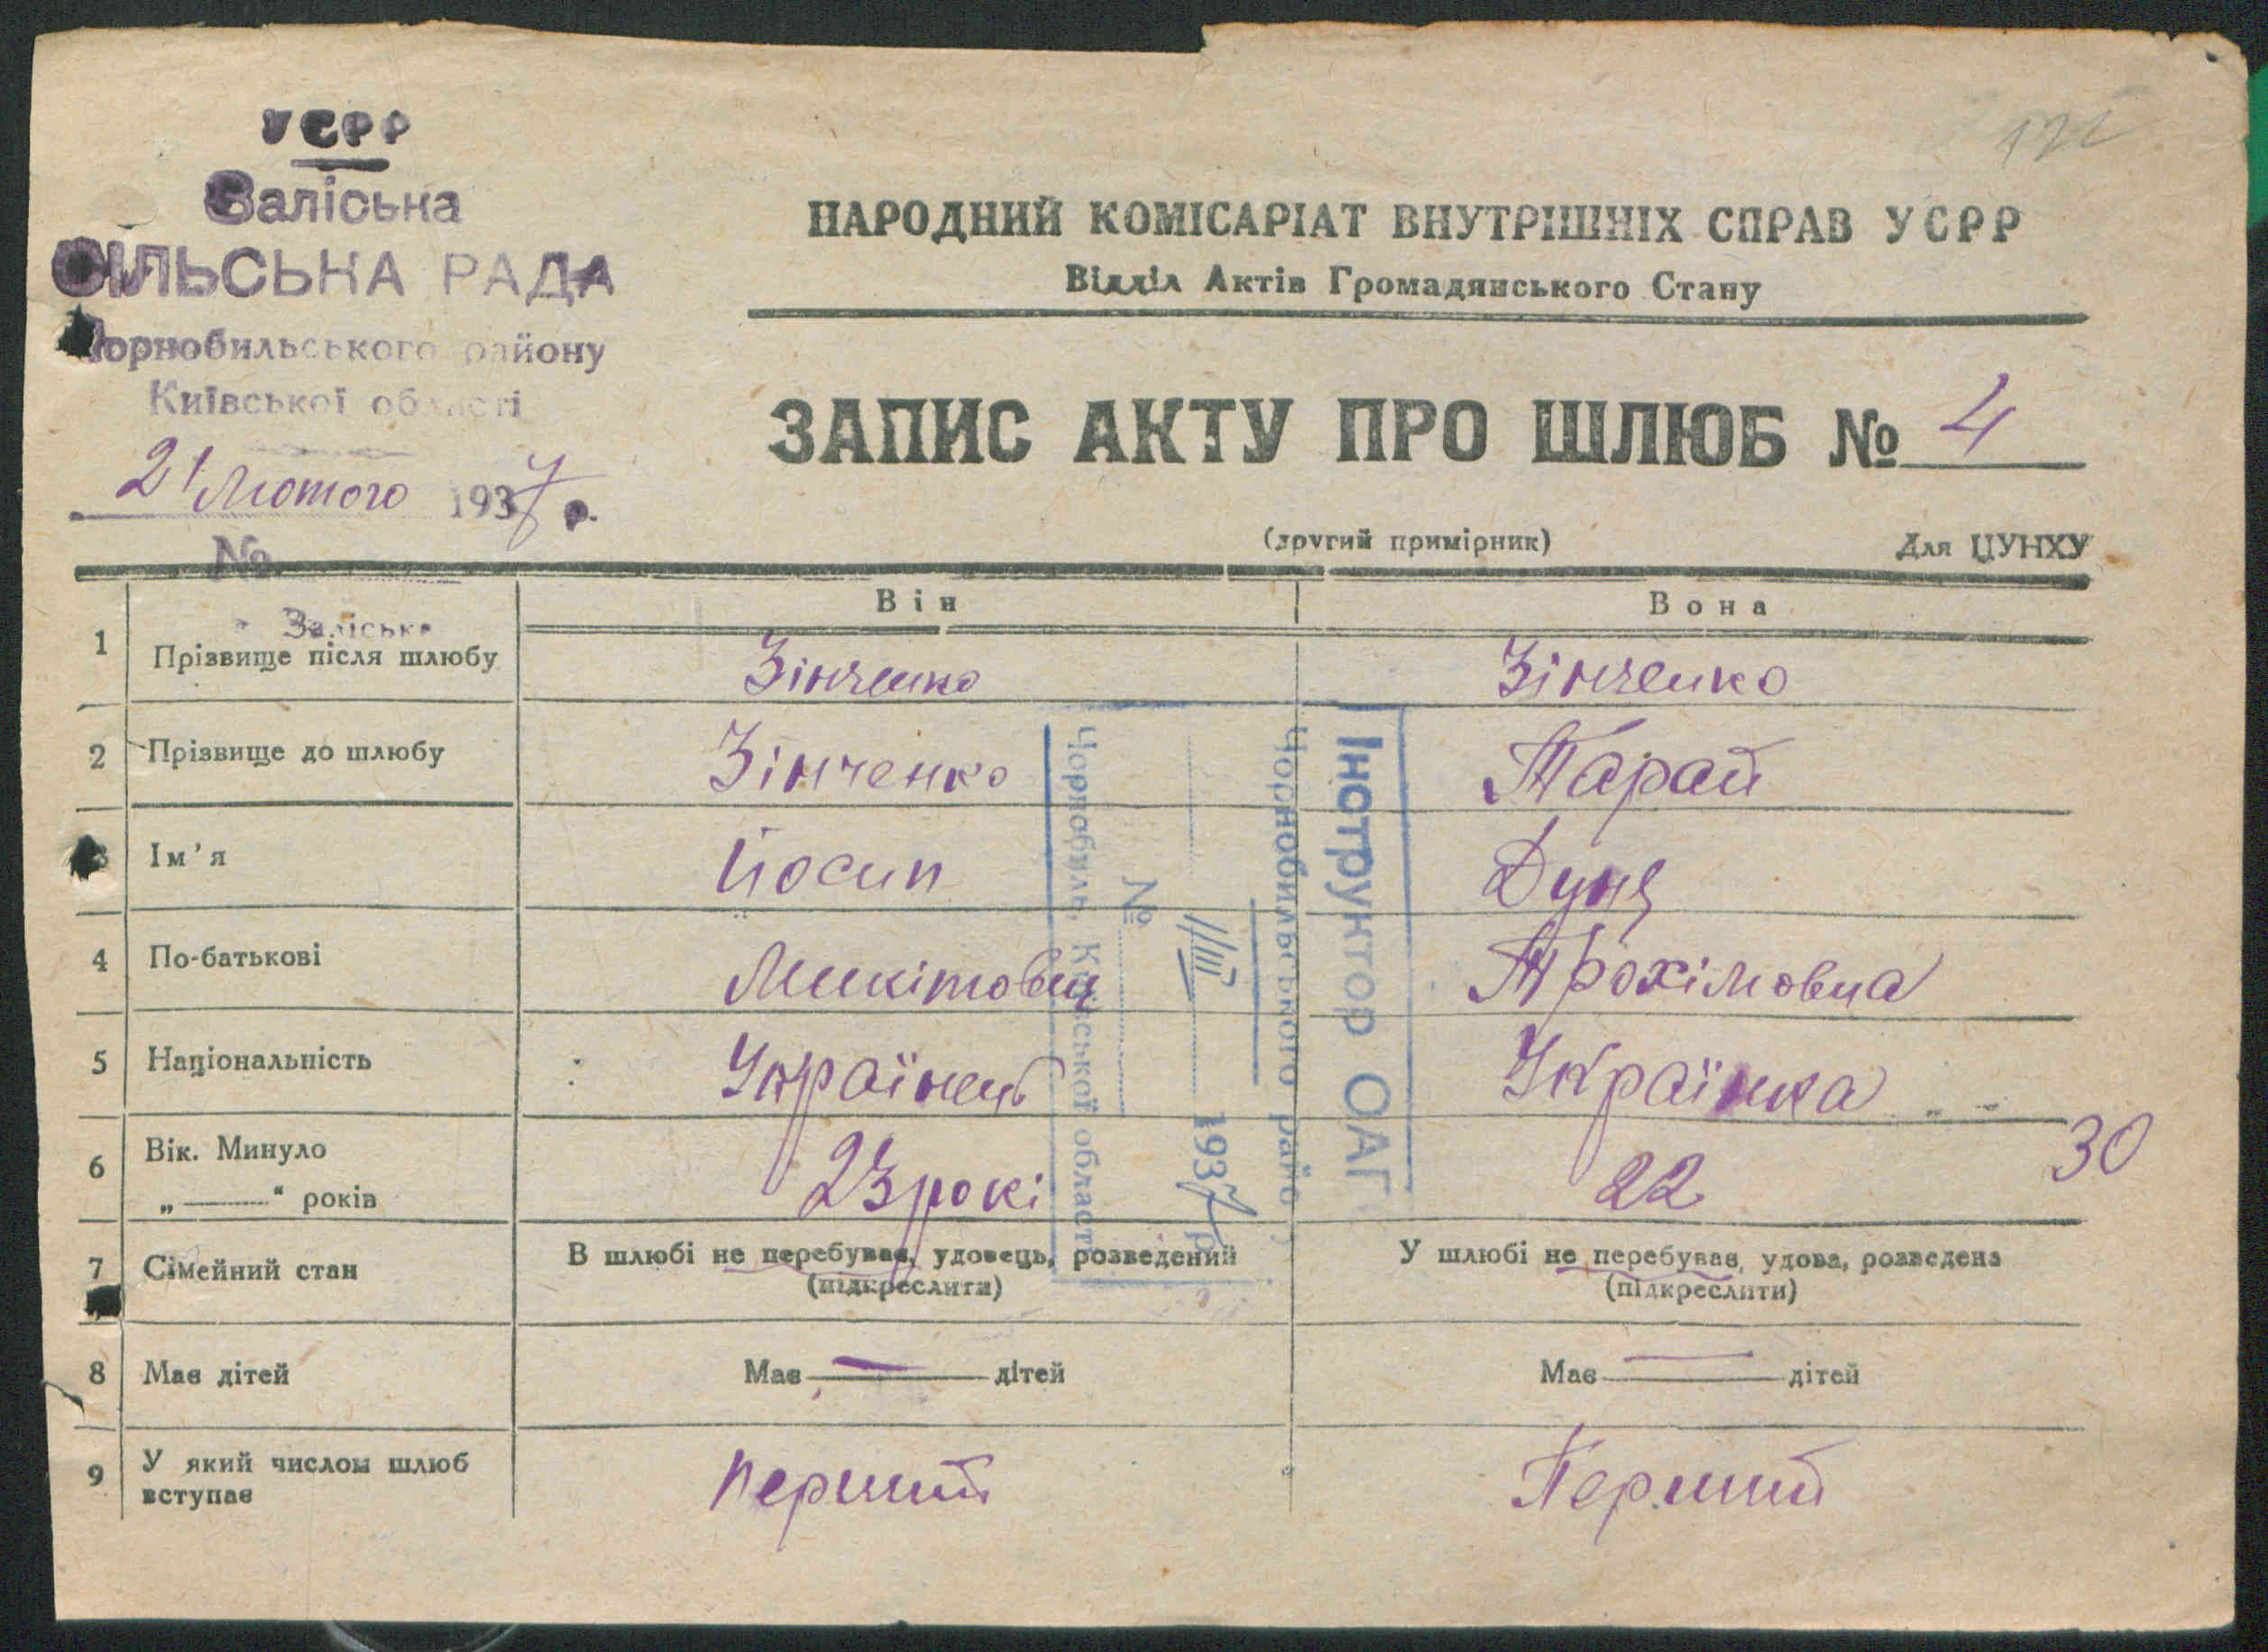 УСРР
Заліська
СІЛЬСЬКА РАДА
Чорнобильського району
Київської області
21 Лютого 1937 р.
№
НАРОДНИЙ КОМІСАРІАТ ВНУТРІШНІХ СПРАВ УСРР
Відділ Актів Громадянського Стану
ЗАПИС АКТУ ПРО ШЛЮБ № 4
(другий примірник) Для ЦУНХУ
Він Вона
Заліська
1 Прізвище після шлюбу Зінченко Зінченко
2 Прізвище до шлюбу Зінченко Тарай
3 Ім'я Йосип Дуня
4 По-батькові Микітович Трохімовна
5 Національність Українець Українка
6 Вік. Минуло „——“ років 23 рокі 22 30
7 Сімейний стан В шлюбі не перебував, удовець, розведений (підкреслити) У шлюбі не перебував, удова, розведена (підкреслити)
8 Має дітей Має —— дітей Має —— дітей
9 У який числом шлюб вступає перший Перший
Інструктор ОАГ
Чорнобильського райо
1937 р
№
Чорнобиль, Київської області